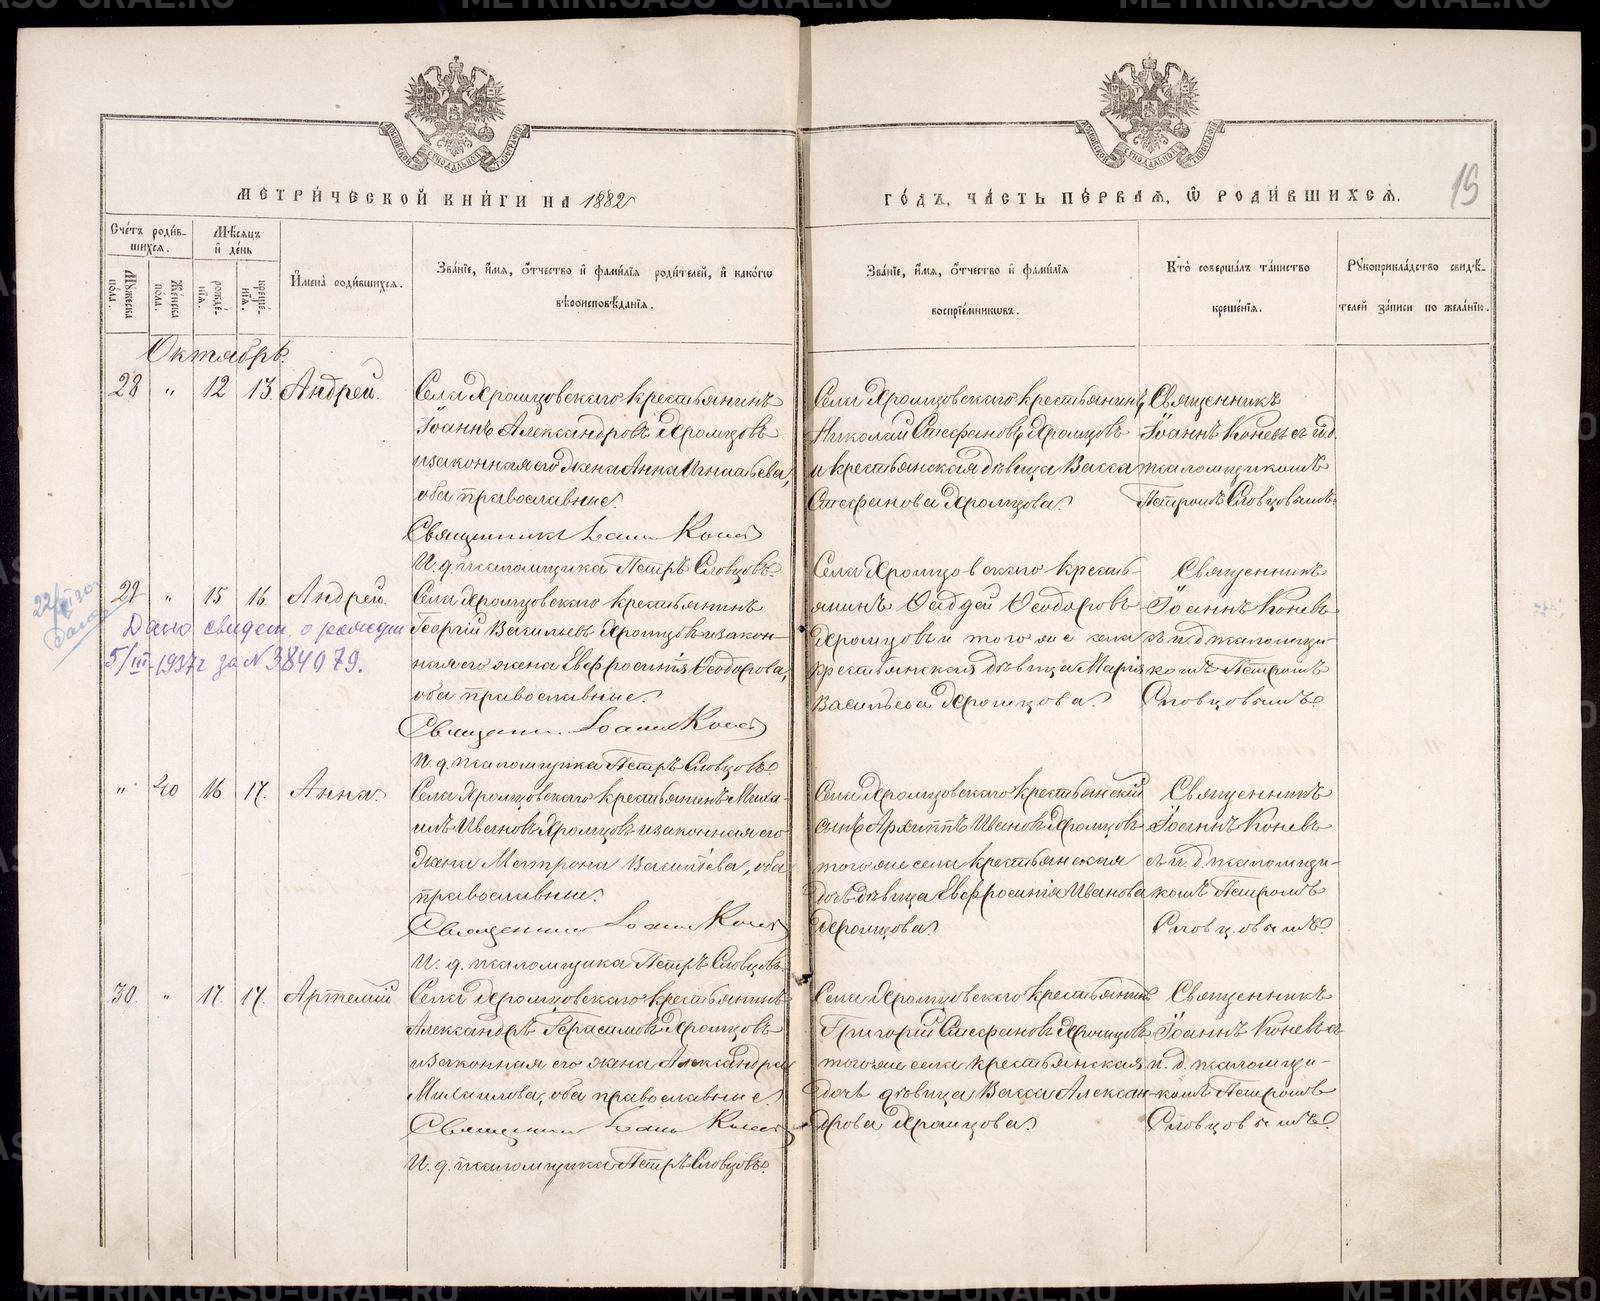 МЕТРИ́ЧЕСКОЙ КНИ́ГИ НА 1882
ГО́ДЪ, ЧА́СТЬ ПЕ́РВАЯ, Ѡ РОДИ́ВШИХСЯ.
15
Сче́тъ роди́в-
шихся.
Мѣ́сяцъ
и҆ де́нь
Мꙋ́жеска по́ла.
Же́нска по́ла.
рожде́-
нїѧ.
креще́-
нїѧ.
И҆мена̀ роди́вшихсѧ.
Зва́нїе, и҆́мѧ, ѻ҆́тчество и҆ фами́лїѧ роди́телей, и҆ како́гѡ
вѣроисповѣ́данїѧ.
Зва́нїе, и҆́мѧ, ѻ҆́тчество и҆ фами́лїѧ
воспрїе́мникѡвъ.
Кто̀ соверша́лъ та́инство
креще́нїѧ.
Рꙋкоприкла́дство свидѣ́-
телей за́писи по жела́нїю.
Октябрь.
28 " 12 13 Андрей.
Села Хромцовскаго крестьянинъ
Іоаннъ Александровъ Хромцовъ
и законная его жена Анна Игнатьева,
оба православные.
Священникъ Іоаннъ Коневъ
И. д. псаломщика Петръ Словцовъ
Села Хромцовскаго крестьянинъ
Николай Стефановъ Хромцовъ
и крестьянская дѣвица Васса
Стефанова Хромцова.
Священникъ
Іоаннъ Коневъ съ и.д.
псаломщикомъ
Петромъ Словцовымъ
29 " 15 16 Андрей.
Дано свидет. о рожден
5/III-1937г за № 384079.
Села Хромцовскаго крестьянинъ
Георгій Васильевъ Хромцовъ и закон-
ная его жена Евфросинія Ѳеодорова,
оба православные.
Священникъ Іоаннъ Коневъ
И. д. псаломщика Петръ Словцовъ
Села Хромцовскаго кресть-
янинъ Ѳаддей Ѳеодоровъ
Хромцовъ и того же села
крестьянская дѣвица Марія
Васильева Хромцова.
Священникъ
Іоаннъ Коневъ
съ и. д. псаломщи-
комъ Петромъ
Словцовымъ
" 20 16 17 Анна.
Села Хромцовскаго крестьянинъ Миха-
илъ Ивановъ Хромцовъ и законная его
жена Матрона Васильева, оба
православные.
Священникъ Іоаннъ Коневъ
И. д. псаломщика Петръ Словцовъ
Села Хромцовскаго крестьянскій
сынъ Архиппъ Ивановъ Хромцовъ
того же села крестьянская
дочь дѣвица Евфросинія Иванова
Хромцова.
Священникъ
Іоаннъ Коневъ
съ и. д. псаломщи-
комъ Петромъ
Словцовымъ
30 " 17 17 Артемій
Села Хромцовскаго крестьянинъ
Александръ Герасимовъ Хромцовъ
и законная его жена Александра
Михаилова, оба православные.
Священникъ Іоаннъ Коневъ
И. д. псаломщика Петръ Словцовъ
Села Хромцовскаго крестьянинъ
Григорій Стефановъ Хромцовъ
того же села крестьянская
дочь дѣвица Васса Алексан-
дрова Хромцова.
Священникъ
Іоаннъ Коневъ съ
и. д. псаломщи-
комъ Петромъ
Словцовымъ